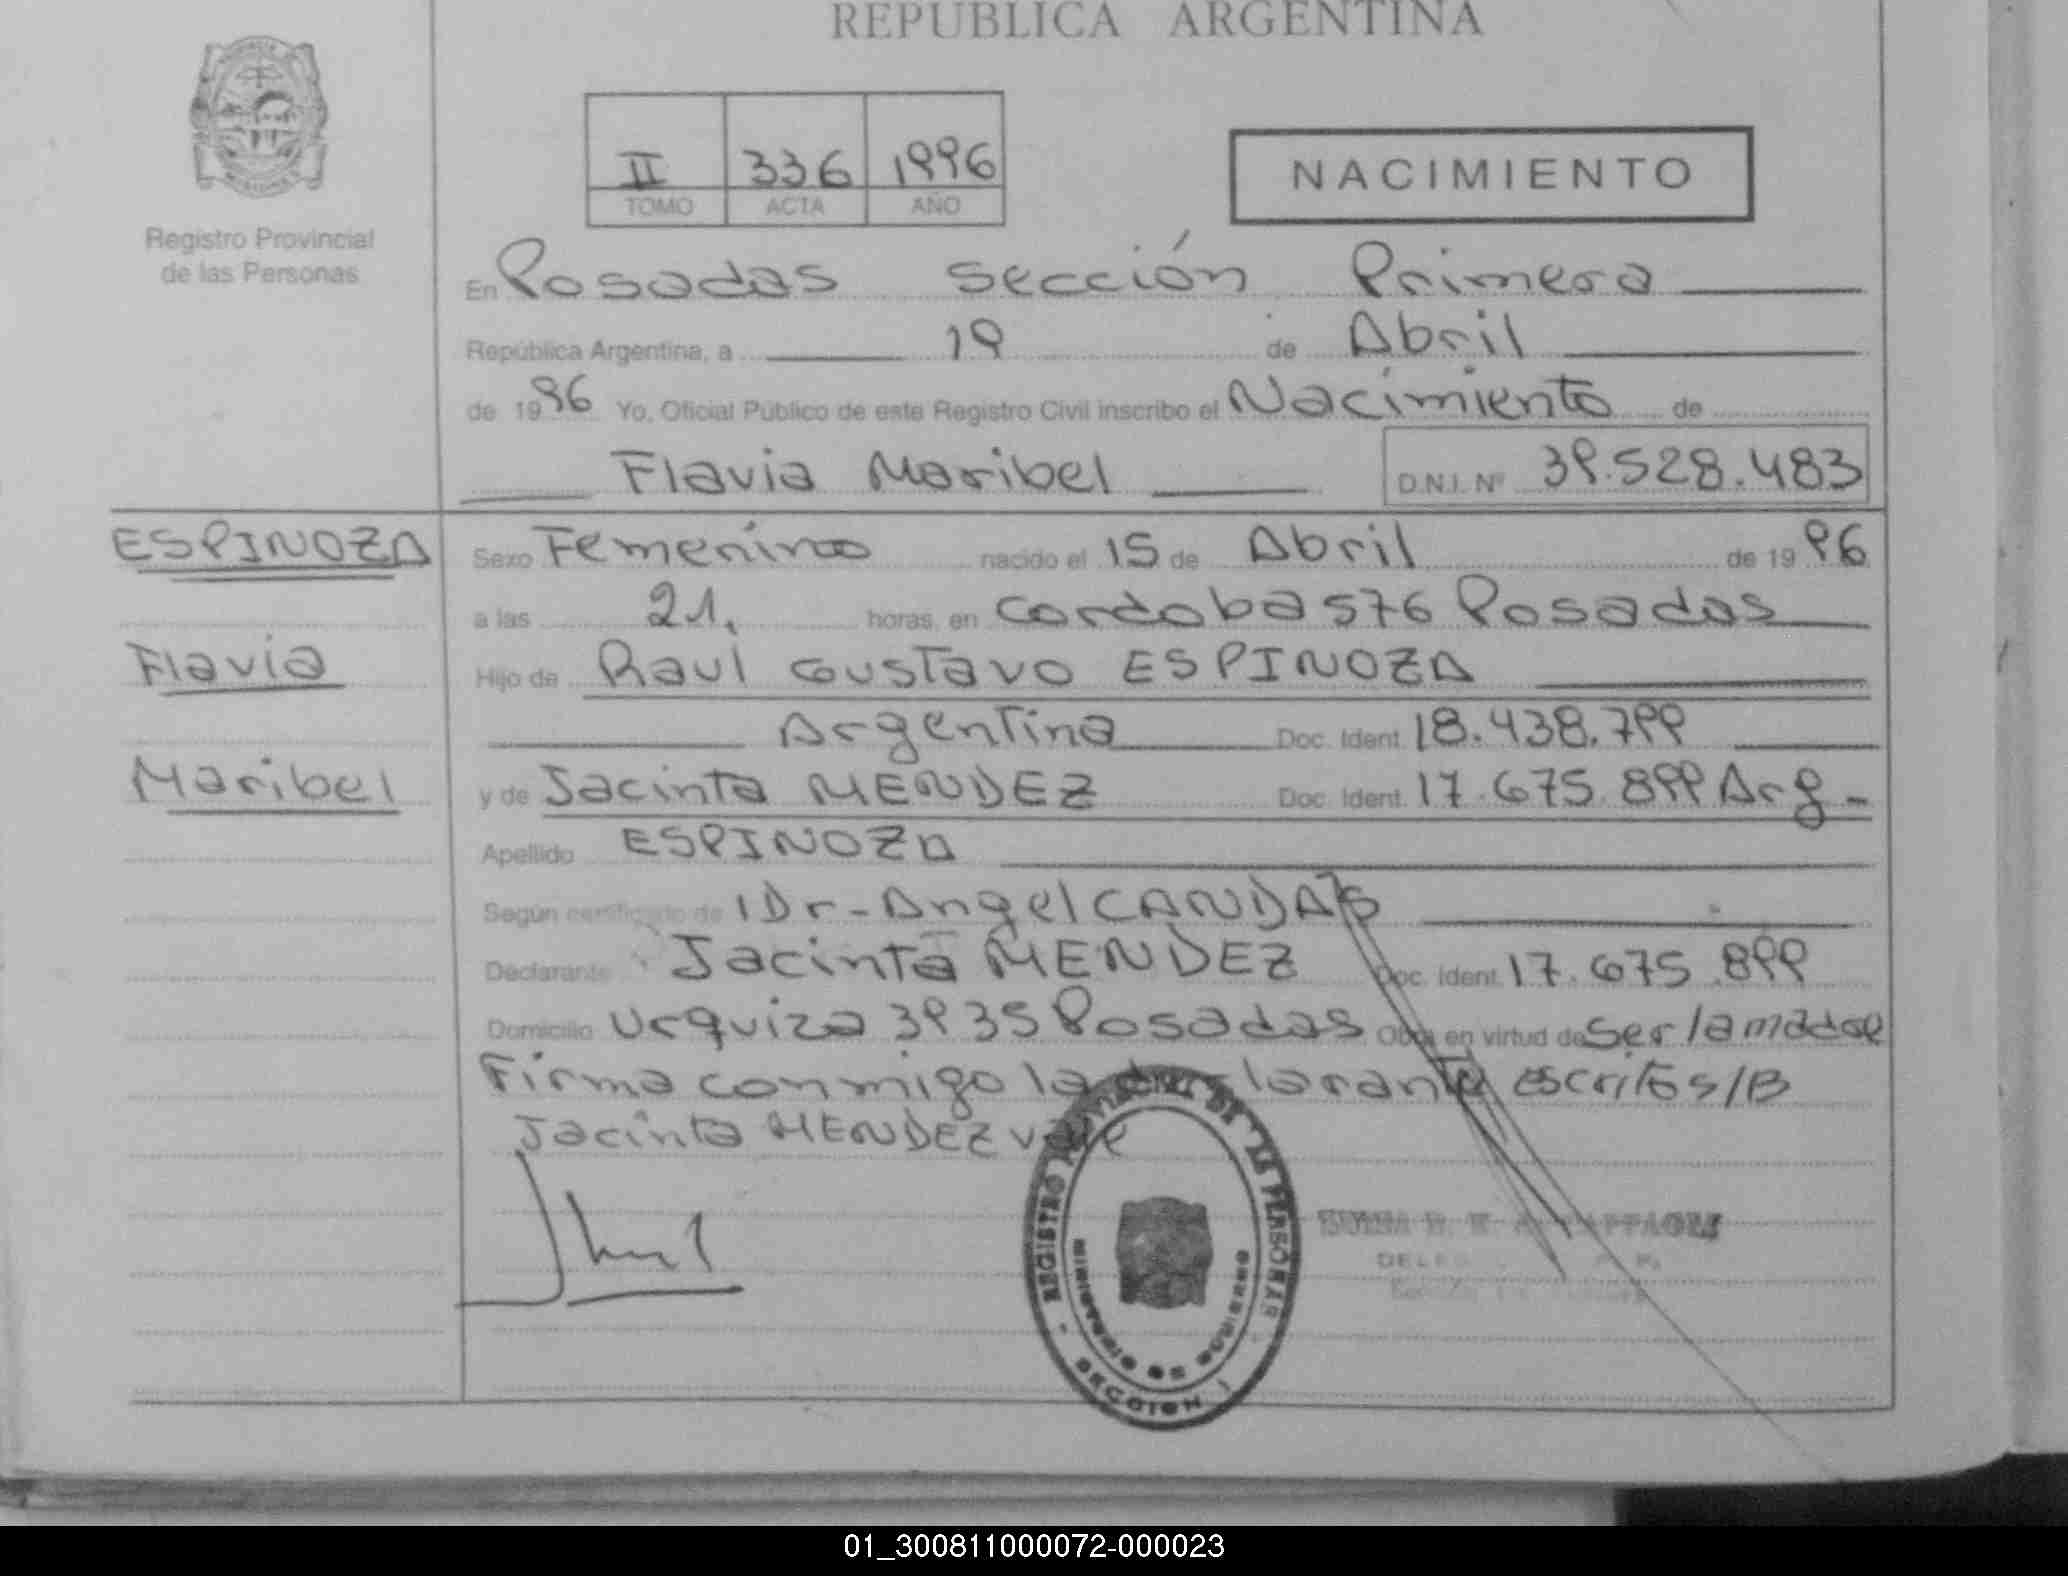 REPUBLICA ARGENTINA
II 336 1996
TOMO ACTA AÑO
NACIMIENTO
Registro Provincial
de las Personas
En Posadas sección Primera
República Argentina, a 19 de Abril
de 1996 Yo, Oficial Público de este Registro Civil inscribo el Nacimiento de
Flavia Maribel D.N.I. Nº 39.528.483
ESPINOZA
Flavia
Maribel
Sexo Femenino nacido el 15 de Abril de 1996
a las 21. horas, en Cordoba 576 Posadas
Hijo de Raul Gustavo ESPINOZA
Argentina Doc. Ident. 18.438.799
y de Jacinta MENDEZ Doc. Ident. 17.675.899 Arg-
Apellido ESPINOZA
Según certificado de l Dr-Angel CANDAS
Declarante Jacinta MENDEZ Doc. Ident. 17.675.899
Domicilio Urquiza 3935 Posadas Obra en virtud de Ser la madre
Firma conmigo la declarante escritos/B
Jacinta MENDEZ vale
REGISTRO PROVINCIAL DE LAS PERSONAS
MINISTERIO DE GOBIERNO
SECCION 1
01_300811000072-000023